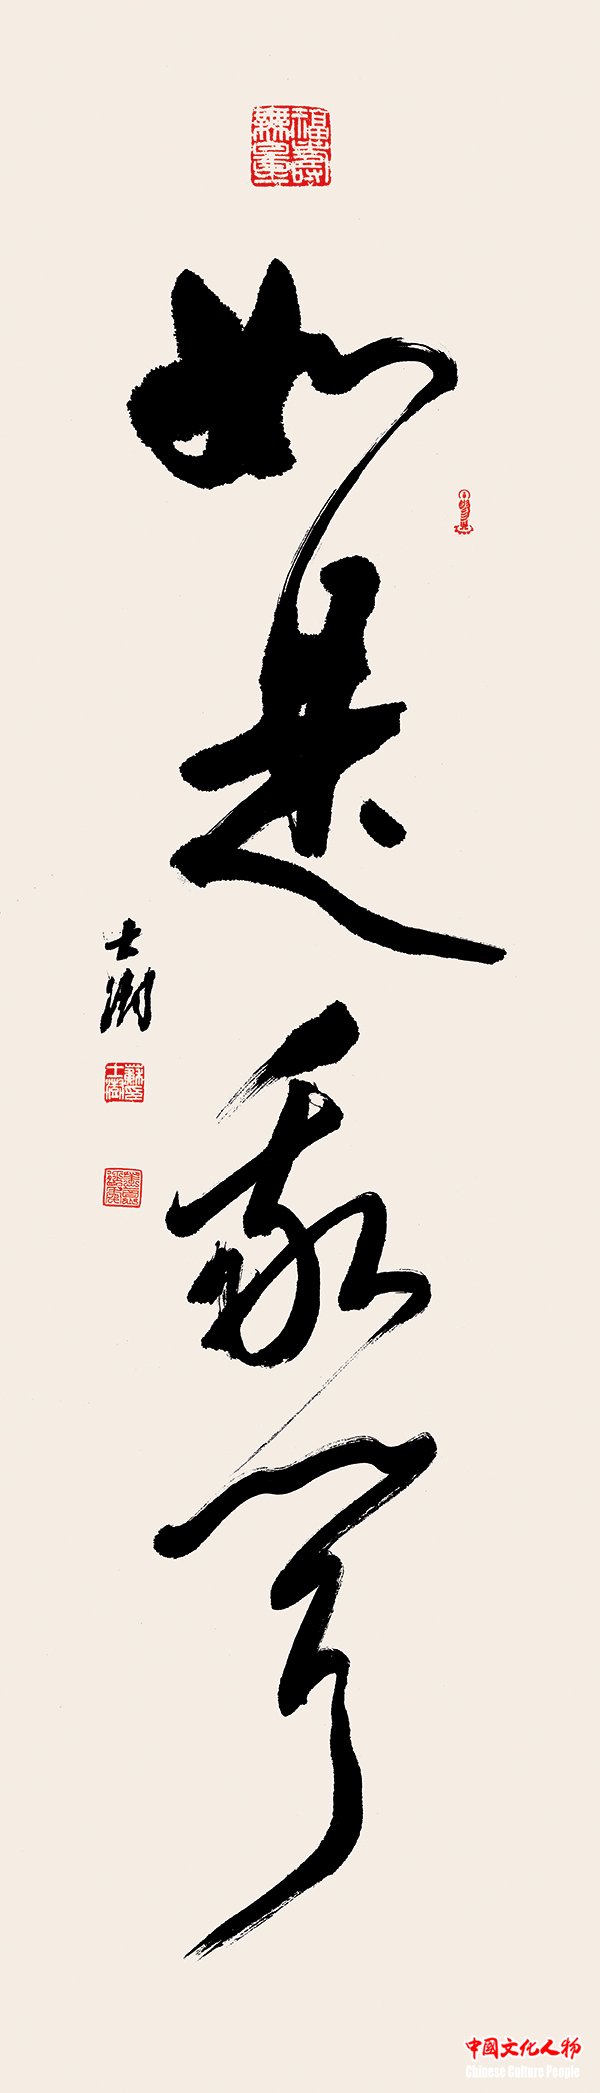 福壽無量
如是我聞
士澍
中國文化人物
Chinese Culture People